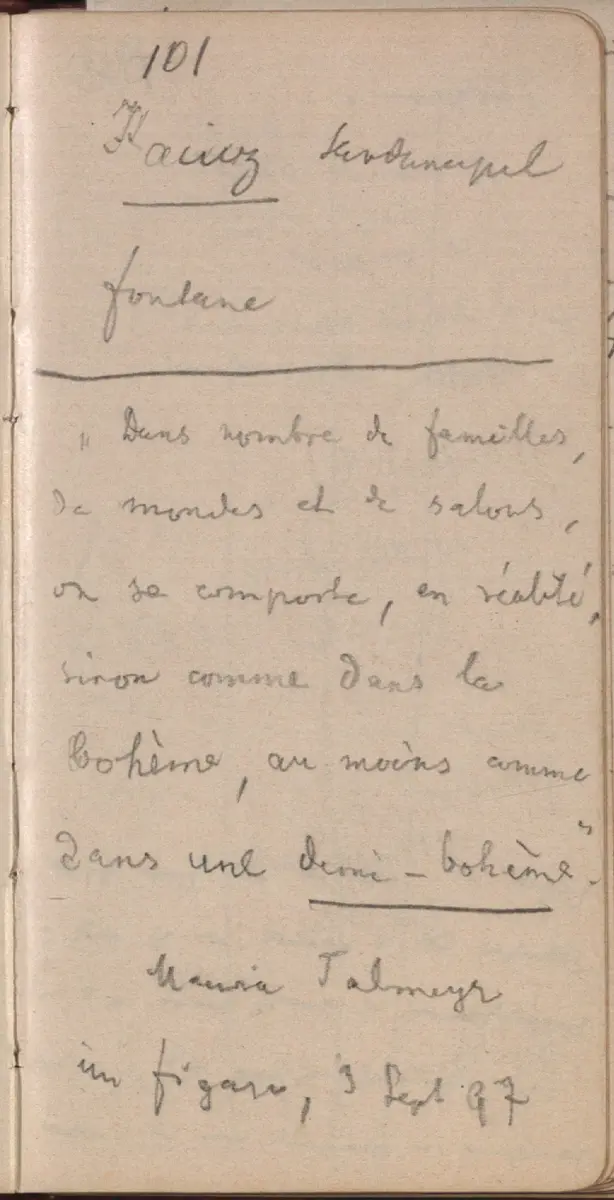 101
Kainz Sardanapal
Fontane
„ Dans nombre de familles,
de mondes et de salons,
on se comporte, en réalité,
sinon comme dans la
bohème, au moins comme
dans une demi-bohème".
Maurice Talmeyr
im Figaro, 3 Sept 97